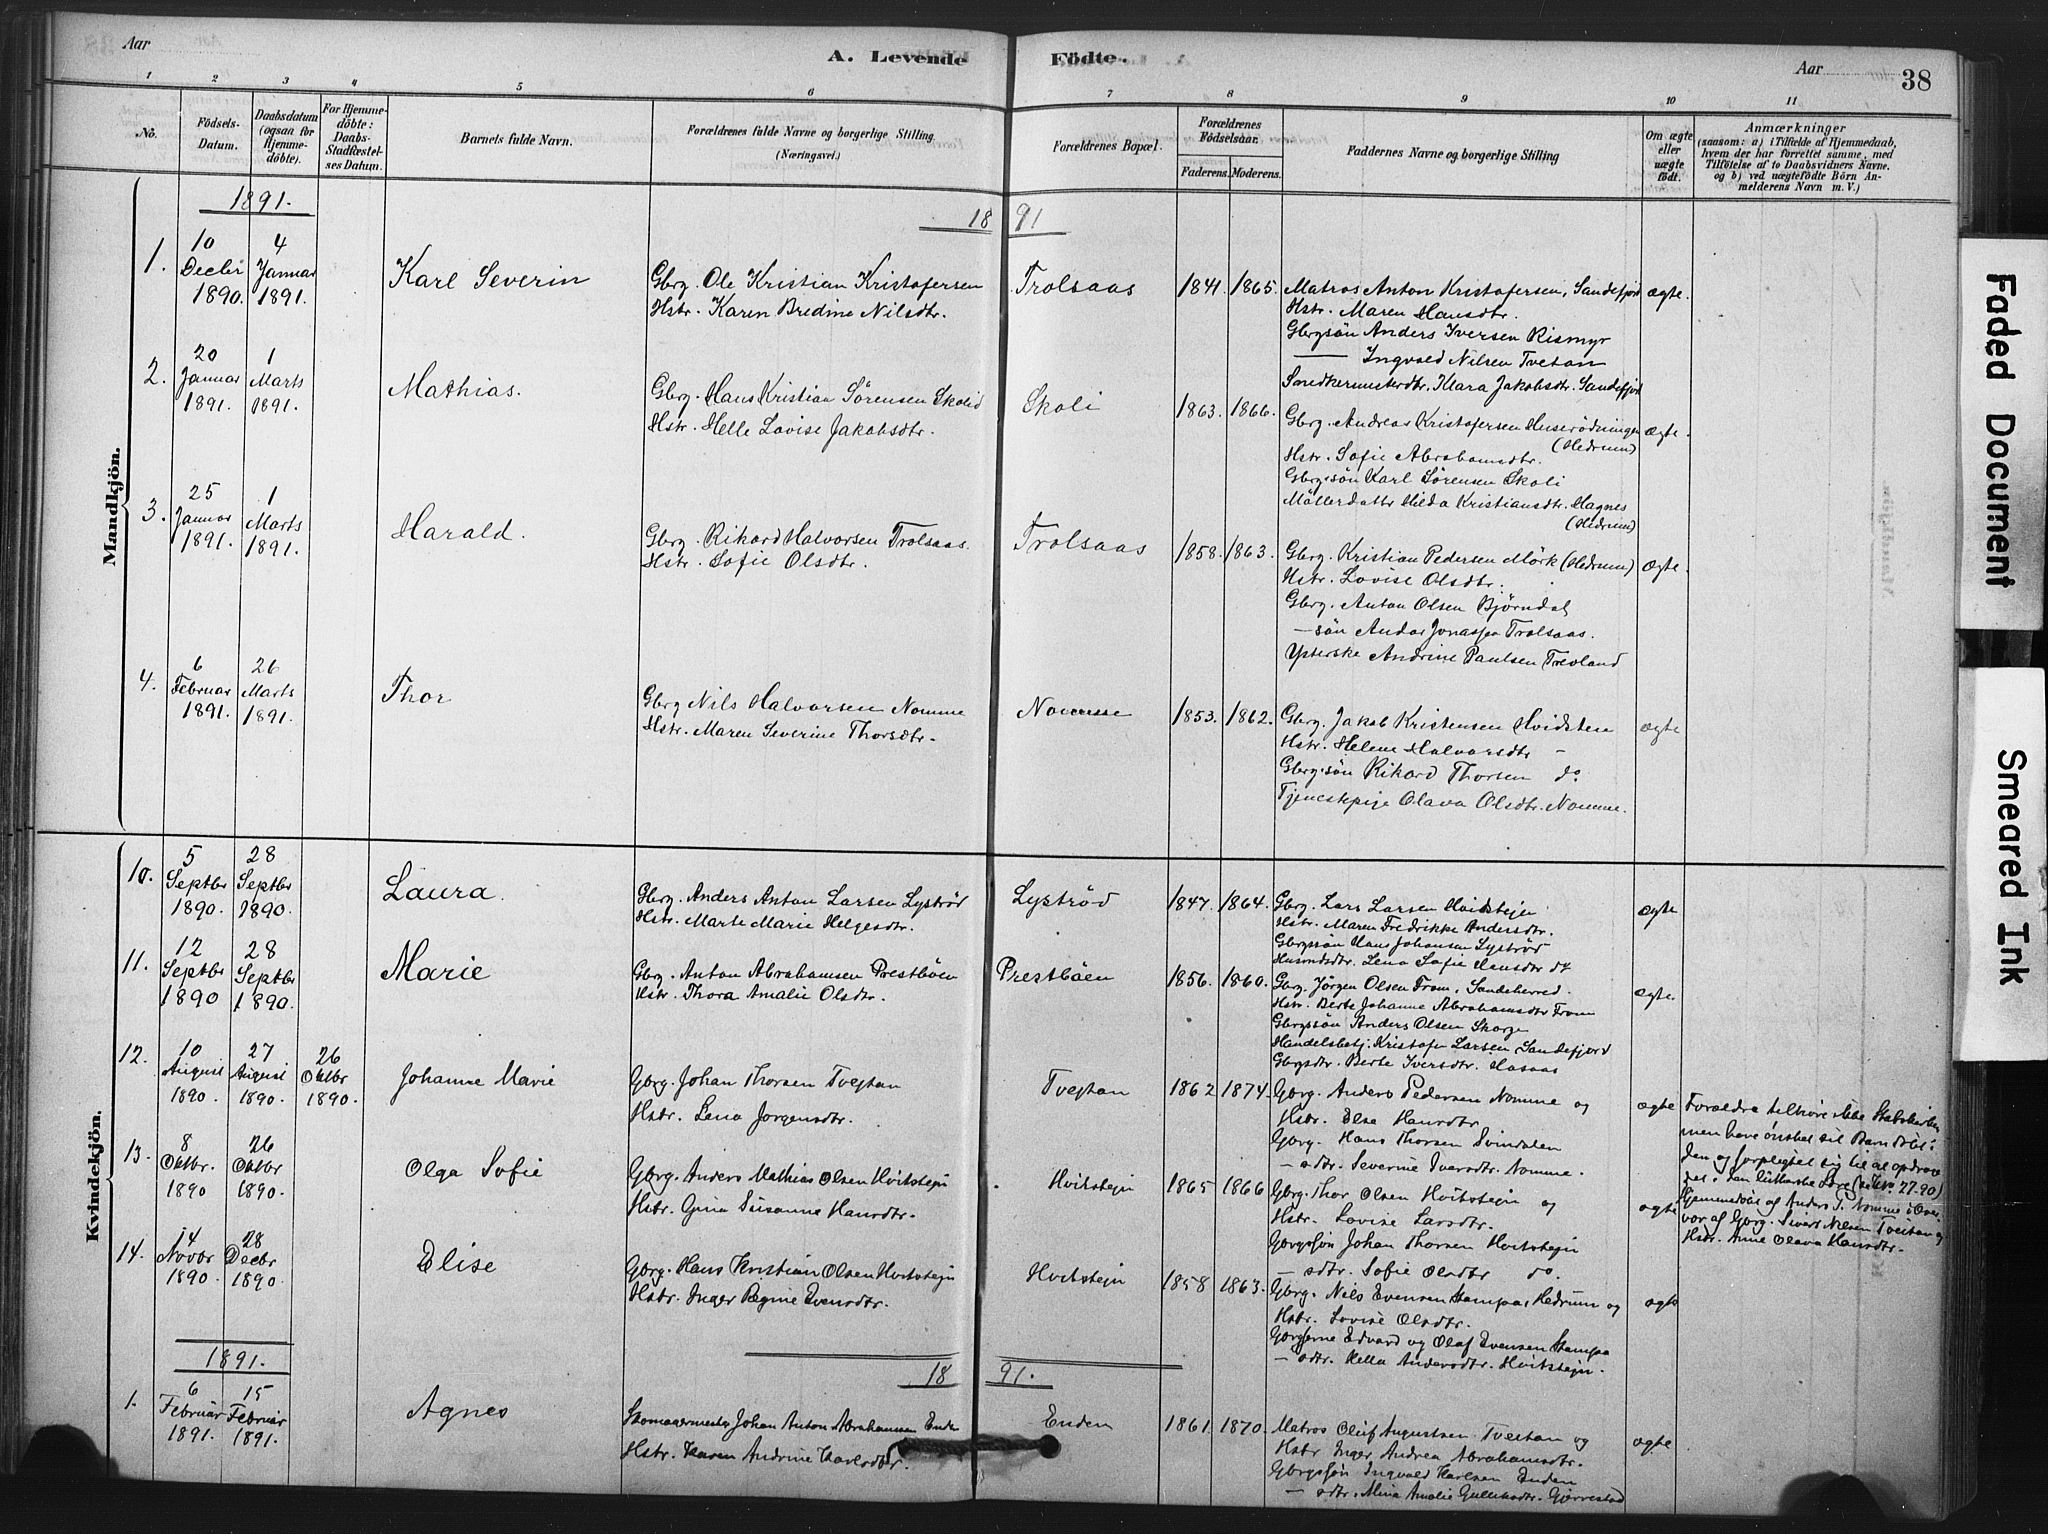 Aar
A. Levende Födte.
Aar
38
1 2 3 4 5 6 7 8 9 10 11
No.
Födsels-Datum.
Daabsdatum (ogsaa for Hjemmedöbte).
For Hjemmedöbte: Daabs-Stadfæstelses Datum.
Barnets fulde Navn.
Forældrenes fulde Navne og borgerlige Stilling. (Næringsvei.)
Forældrenes Bopæl.
Forældrenes Födselsaar.
Faderens. Moderens.
Faddernes Navne og borgerlige Stilling
Om ægte eller uægte födt.
Anmærkninger
(saasom: a) i Tilfælde af Hjemmedaab, hvem der har forrettet samme, med Tilföielse af to Daabsvidners Navne. og b) ved uægtefödte Börn Anmelderens Navn m. V.)
Mandkjön.
1891.
18 91
1.
10 Decbr 1890.
4 Januar 1891.
Karl Severin
Gbrg. Ole Kristian Kristofersen
Hstr. Karen Bredine Nilsdtr.
Trolsaas
1841. 1865.
Matros Anton Kristofersen, Sandefjord
Hstr. Maren Hansdtr.
Gbrgsön Anders Iversen Rismyr
— Ingvald Nilsen Tvetan
Snedkermesterdtr. Klara Jakobsdtr. Sandefjord
ægte.
2.
20 Januar 1891.
1 Marts 1891.
Mathias.
Gbrg. Hans Kristian Sörensen Skolid
Hstr. Helle Lovise Jakobsdtr.
Skoli
1863. 1866.
Gbrg. Andreas Kristofersen Huserödningen
(Hedrum)
Hstr. Sofie Abrahamsdtr.
Gbrg.sön Karl Sörensen Skoli
Möllerdatter Hilda Kristiansdtr. Hagnes
(Hedrum)
ægte.
3.
25 Januar 1891.
1 Marts 1891.
Harald.
Gbrg. Rikard Halvorsen Trolsaas.
Hstr. Sofie Olsdtr.
Trolsaas
1858. 1863.
Gbrg. Kristian Pedersen Mörk (Hedrum)
Hstr. Lovise Olsdtr.
Gbrg. Anton Olsen Björndal
— sön Andor Jonassen Trolsaas.
Andrine Paulsen Trevland
ægte.
4.
6 Februar 1891.
26 Marts 1891.
Thor
Gbrg Nils Halvorsen Nomme
Hstr. Maren Severine Thorsdtr.
Nomme
1853. 1862.
Gbrg. Jakob Kristensen Hvidsten
Hstr. Helene Halvorsdtr —
Gbrg.sön Rikard Thorsen do
Tjenestepige Olava Olsdtr. Nomme.
ægte
Kvindekjön.
10.
5 Septbr 1890.
28 Septbr 1890.
Laura.
Gbrg. Anders Anton Larsen Lyströd
Hstr. Marte Marie Helgesdtr.
Lyströd
1847. 1864.
Gbrg. Lars Larsen Hvidstejn
Hstr. Maren Fredrikke Andersdtr.
Gbrgssön Hans Johansen Lyströd
Husmdsdtr. Lena Sofie Hansdtr do
ægte
11.
12 Septbr 1890
28 Septbr 1890.
Marie
Gbrg. Anton Abrahamsen Prestböen
Hstr. Thora Amalie Olsdtr.
Prestböen
1856. 1860.
Gbrg. Jörgen Olsen Fram, Sandeherred.
Hstr. Berte Johanne Abrahamsdtr Fram
Gbrgssön Anders Olsen Skorge
Handelsbetj. Kristofer Larsen Sandefjord
Gbrgsdtr. Berte Iversdtr. Hasaas
ægte.
12.
10 August 1890.
27 August 1890.
26 Oktbr 1890.
Johanne Marie
Gbrg. Johan Thorsen Tvejtan
Hstr. Lena Jörgensdtr.
Tvejtan
1862 1874.
Gbrg. Anders Pedersen Nomme og
Hstr. Else Hansdtr
Gbrg. Hans Thorsen Svindalen
— sdtr. Severine Iversdtr. Nomme.
ægte
Forældre tilhöre ikke Statskirken
men have önsket sit Barn döbt i
den og forpligtet sig til at opdrage
det i den lutherske Lære
Hjemmedöbt af Anders P. Nomme i Over-
vær af Gbrg. Sivert Nilsen Tveitan og
Hstr. Anne Olava Hansdtr.
13.
8 Oktbr. 1890
26 Oktbr 1890.
Olga Sofie
Gbrg. Anders Mathias Olsen Hvitstejn
Hstr. Gina Susanne Hansdtr.
Hvitstejn
1865 1866
Gbrg. Thor Olsen Hvitstejn og
Hstr. Lovise Larsdtr.
Gbrgssön Johan Thorsen Hvitstejn
— sdtr. Sofie Olsdtr do.
ægte
14.
14 Novbr 1890.
28 Decbr 1890.
Elise
Gbrg. Hans Kristian Olsen Hvitstejn
Hstr. Inger Regine Evensdtr.
Hvitstejn
1858 1863.
Gbrg. Nils Evensen Stampa Hedrum og
Hstr. Lovise Olsdtr.
Edvard og Olaf Evensen Stampa
— sdtr. Hella Andersdtr. Hvitstejn.
ægte
1891.
18 91.
1.
6 Februar 1891.
15 Februar 1891.
Agnes
Skomagermester Johan Anton Abrahamsen Enden
Hstr. Karen Andrine Karlsdtr.
Enden
1861. 1870.
Matros Oluf Augustsen Tveitan og
Hstr Inger Andrea Abrahamsdtr.
Gbrgssön Ingvald Karlsen Enden
— sdtr. Alina Amalie Gulliksdtr. Gjerrestad
ægte
Faded Document
Smeared Ink